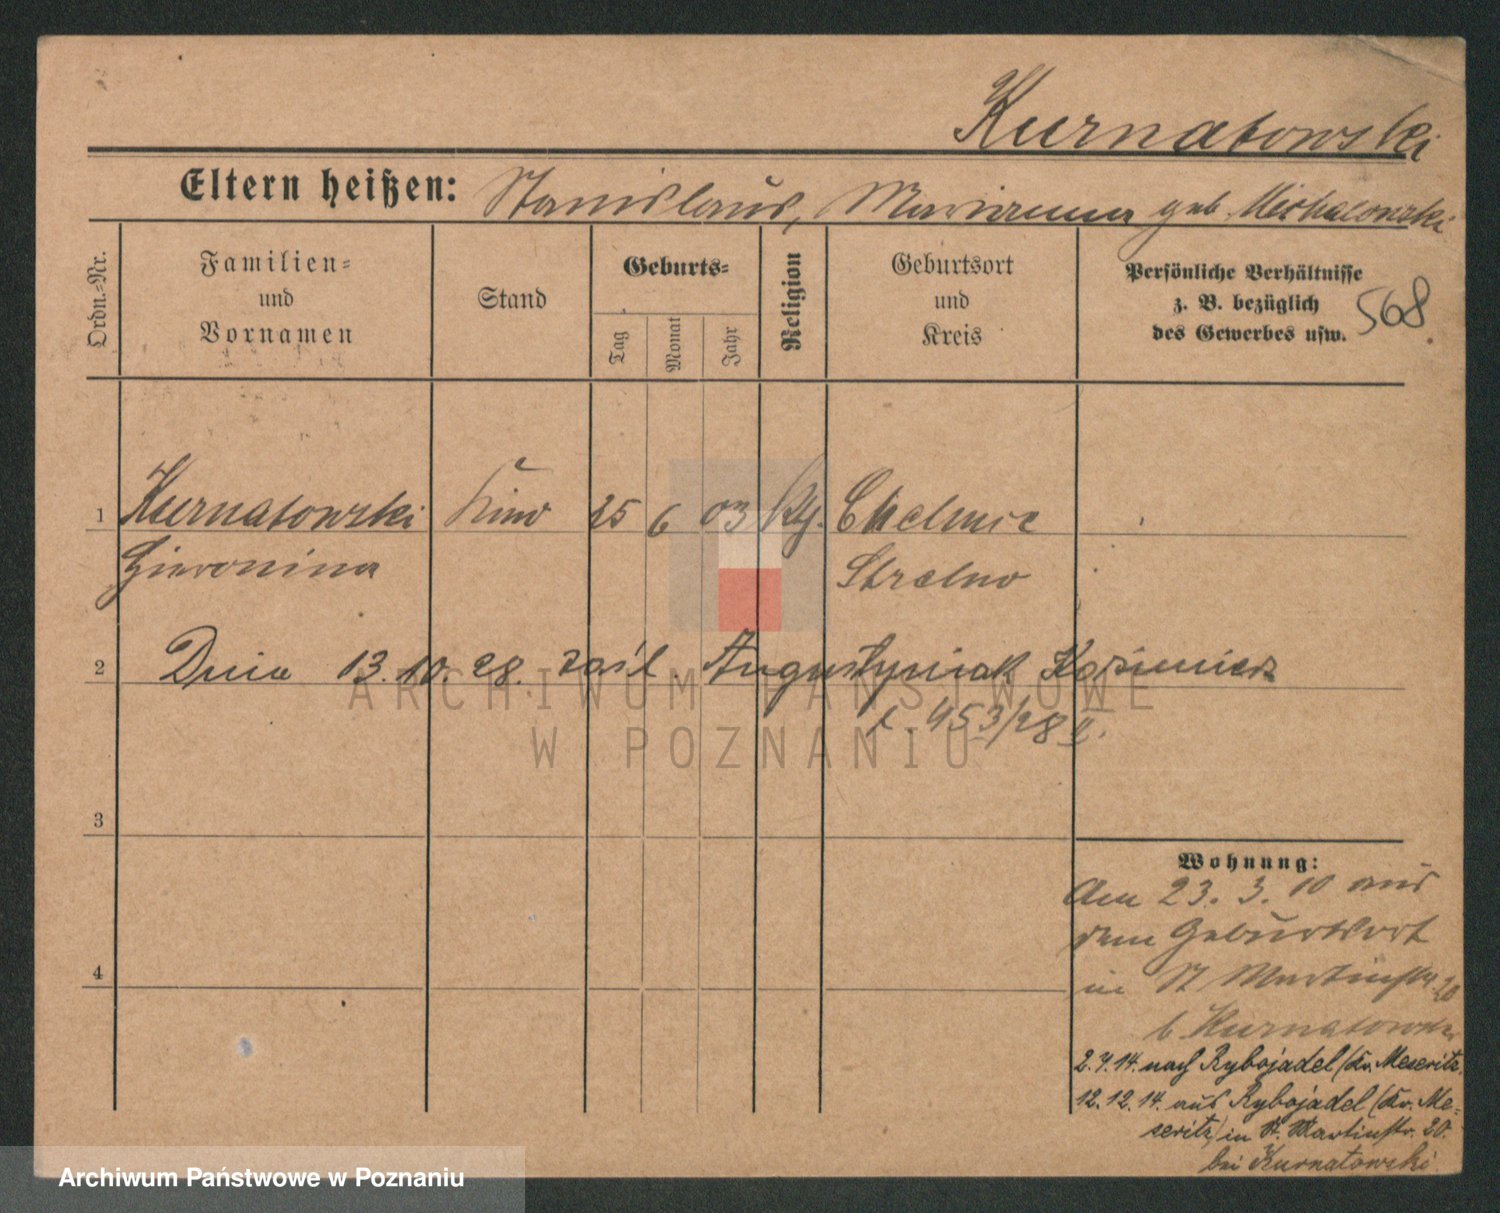 Kurnatowski
Eltern heißen: Stanislaus, Marianna geb. Michalowski
Ordn.-Nr.
Familien- und Vornamen
Stand
Geburts-
Tag
Monat
Jahr
Religion
Geburtsort und Kreis
Persönliche Verhältnisse
z. B. bezüglich
des Gewerbes usw.
568
1 Kurnatowski Kind 25 6 03 Chelmce
Hieronina Strelno
2 Dnia 13.10.28. zaśl. Augustyniak Kazimierz
l. 453/28 II.
3
4
Wohnung:
Am 23. 3. 10 aus
dem Geburtsort
in St Martinstr. 20
b. Kurnatowski
2.4.14. nach Rybojadel (Kr. Meseritz.
12.12.14. aus Rybojadel (Kr. Me-
seritz) in St. Martinstr. 20.
bei Kurnatowski
ARCHIWUM PAŃSTWOWE
W POZNANIU
Archiwum Państwowe w Poznaniu